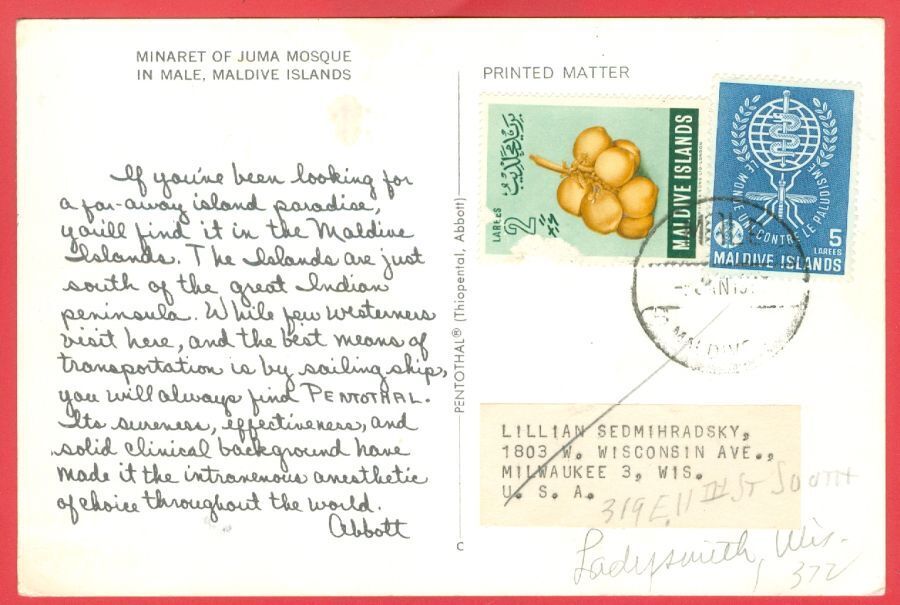 MINARET OF JUMA MOSQUE
IN MALE, MALDIVE ISLANDS
If you've been looking for
a far-away island paradise,
you'll find it in the Maldive
Islands. The Islands are just
south of the great Indian
peninsula. While few westerners
visit here, and the best means of
transportation is by sailing ship,
you will always find PENTOTHAL.
Its sureness, effectiveness, and
solid clinical background have
made it the intravenous anesthetic
of choice throughout the world.
Abbott
PENTOTHAL® (Thiopental, Abbott)
C
PRINTED MATTER
2
LAREES
MALDIVE ISLANDS
LE MONDE UNI CONTRE LE PALUDISME
5
LAREES
MALDIVE ISLANDS
MALDIVE
LILLIAN SEDMIHRADSKY,
1803 W. WISCONSIN AVE.,
MILWAUKEE 3, WIS.
U. S. A.
319 E. 11 TH ST SOUTH
Ladysmith, Wis.